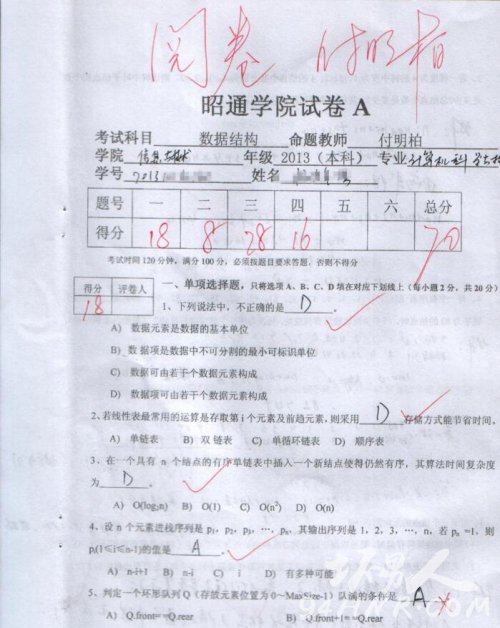 阅卷 付明柏
昭通学院试卷 A
考试科目 数据结构 命题教师 付明柏
学院 信息技术 年级 2013（本科） 专业 计算机科学与技
学号 2013 姓名
题号 一 二 三 四 五 六 总分
得分 18 8 28 16 70
考试时间 120 分钟，满分 100 分，必须按题目要求答题，否则不得分
得分 评卷人
18
一、单项选择题，只将选项 A、B、C、D 填在对应下划线上（每小题 2 分，共 20 分）
1、下列说法中，不正确的是 D 。
A) 数据元素是数据的基本单位
B) 数据项是数据中不可分割的最小可标识单位
C) 数据可由若干个数据元素构成
D) 数据项可由若干个数据元素构成
2、若线性表最常用的运算是存取第 i 个元素及前趋元素，则采用 D 存储方式能节省时间。
A) 单链表 B) 双链表 C) 单循环链表 D) 顺序表
3、在一个具有 n 个结点的有序单链表中插入一个新结点使得仍然有序，其算法时间复杂度
为 D 。
A) O(log₂n) B) O(1) C) O(n²) D) O(n)
4、设 n 个元素进栈序列是 p₁，p₂，p₃，…，pₙ，其输出序列是 1，2，3，…，n，若 pₙ =1，则
pᵢ(1≤i≤n-1)的值是 A 。
A) n-i+1 B) n-i C) i D) 有多种可能
5、判定一个环形队列 Q（存放元素位置为 0～MaxSize-1）队满的条件是 A
A) Q.front==Q.rear B) Q.front+1==Q.rear